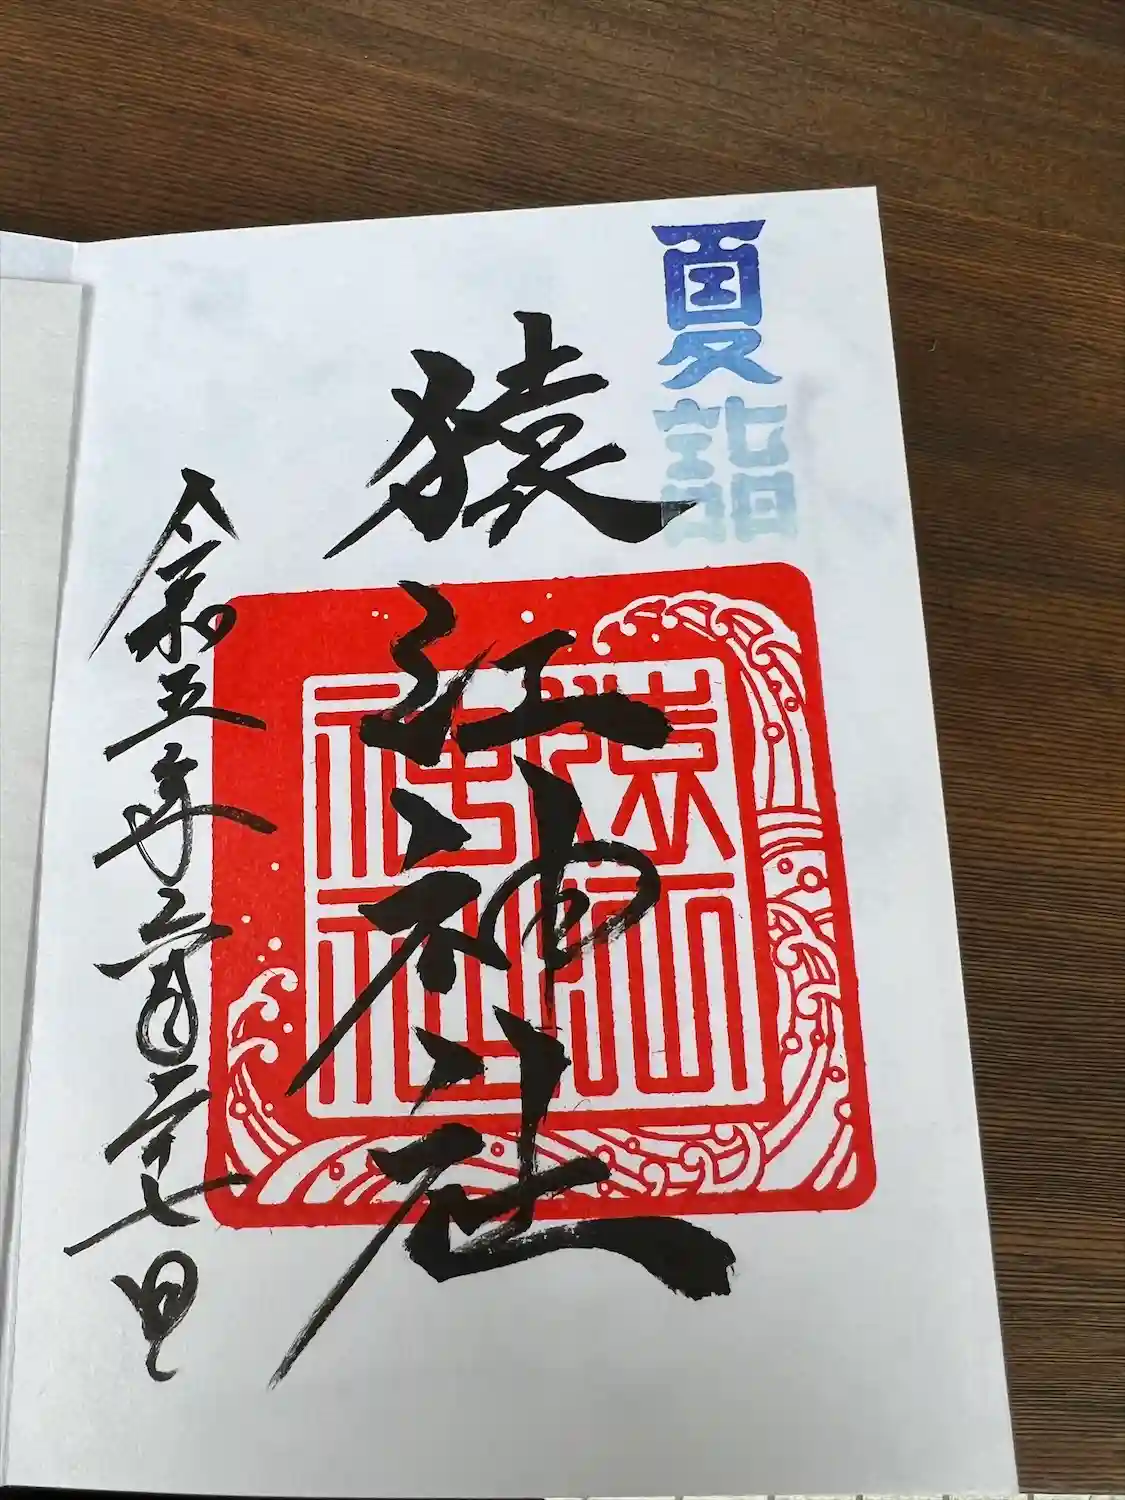 夏詣
猿江神社
猿江
神社
令和五年 月二十七日